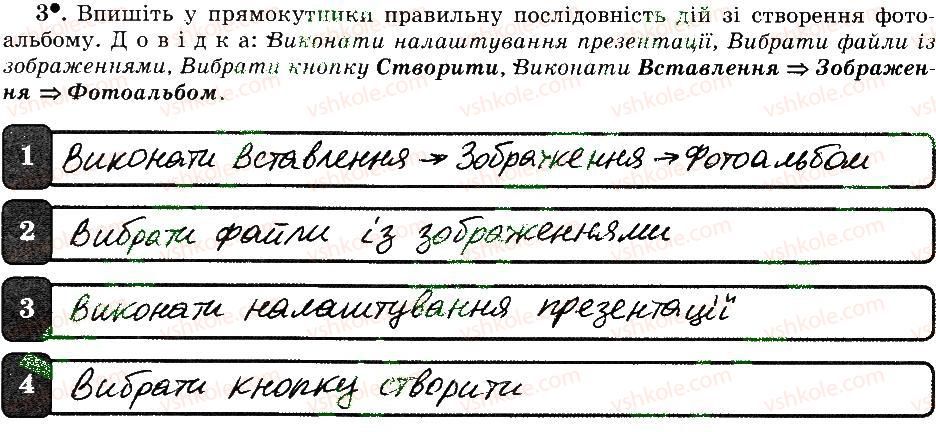 3•. Впишіть у прямокутники правильну послідовність дій зі створення фото-
альбому. Довідка: Виконати налаштування презентації, Вибрати файли із
зображеннями, Вибрати кнопку Створити, Виконати Вставлення ⇒ Зображен-
ня ⇒ Фотоальбом.
1 Виконати Вставлення → Зображення → Фотоальбом
2 Вибрати файли із зображеннями
3 Виконати налаштування презентації
4 Вибрати кнопку створити